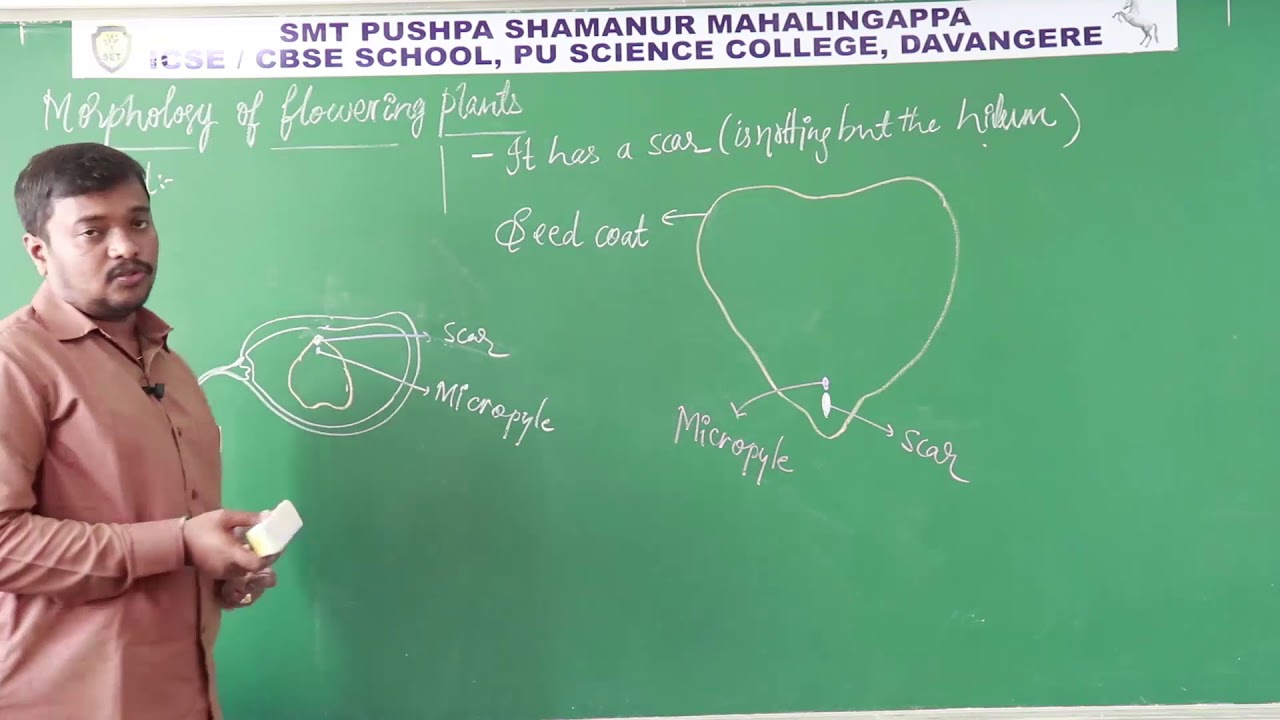 SMT PUSHPA SHAMANUR MAHALINGAPPA
ICSE / CBSE SCHOOL, PU SCIENCE COLLEGE, DAVANGERE
SET
Morphology of flowering plants
- It has a scar (is nothing but the hilum)
t:-
Seed coat
scar
Micropyle
Micropyle
scar